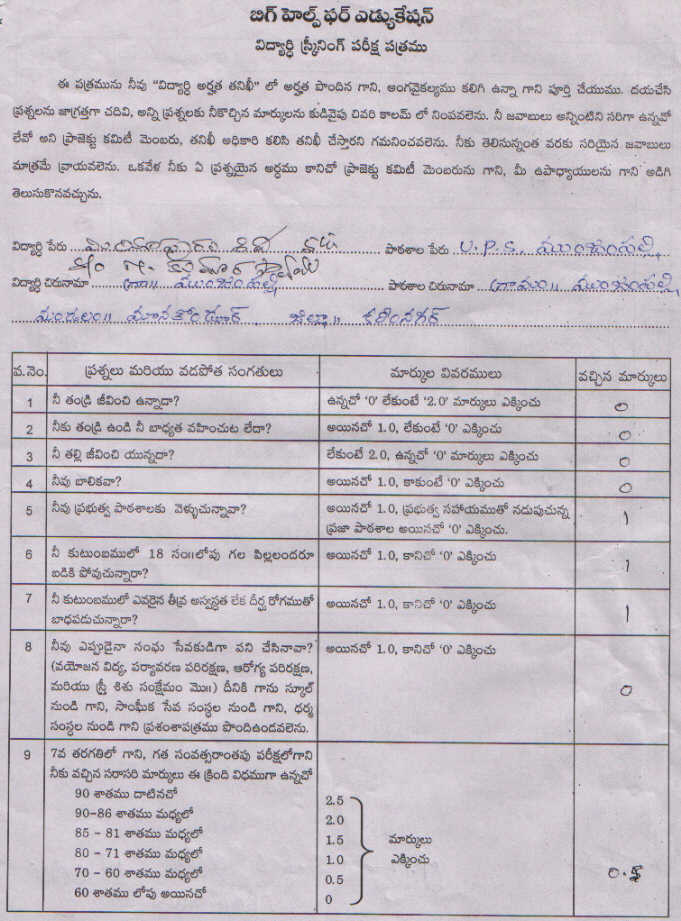 బిగ్ హెల్ప్ ఫర్ ఎడ్యుకేషన్
విద్యార్ధి స్క్రీనింగ్ పరీక్ష పత్రము
ఈ పత్రమును నీవు "విద్యార్ధి అర్హత తనిఖీ" లో అర్హత పొందిన గాని, అంగవైకల్యము కలిగి ఉన్నా గాని పూర్తి చేయుము. దయచేసి
ప్రశ్నలను జాగ్రత్తగా చదివి, అన్ని ప్రశ్నలకు నీకొచ్చిన మార్కులను కుడివైపు చివరి కాలమ్ లో నింపవలెను. నీ జవాబులు అన్నింటిని సరిగా ఉన్నవో
లేవో అని ప్రాజెక్టు కమిటీ మెంబరు, తనిఖీ అధికారి కలిసి తనిఖీ చేస్తారని గమనించవలెను. నీకు తెలిసున్నంత వరకు సరియైన జవాబులు
మాత్రమే వ్రాయవలెను. ఒకవేళ నీకు ఏ ప్రశ్నయైన అర్ధము కానిచో ప్రాజెక్టు కమిటీ మెంబరును గాని, మీ ఉపాధ్యాయులను గాని అడిగి
తెలుసుకొనవచ్చును.
విద్యార్ధి పేరు పాఠశాల పేరు U.P.S.
S/o
విద్యార్ధి చిరునామా గ్రా॥ పాఠశాల చిరునామా గ్రామం॥
మండలం॥ మానకొండూర్ జిల్లా॥ కరీంనగర్
వ.నెం. ప్రశ్నలు మరియు వడపోత సంగతులు మార్కుల వివరములు వచ్చిన మార్కులు
1 నీ తండ్రి జీవించి ఉన్నాడా? ఉన్నచో '0' లేకుంటే '2.0' మార్కులు ఎక్కించు 0
2 నీకు తండ్రి ఉండి నీ బాధ్యత వహించుట లేదా? అయినచో 1.0, లేకుంటే '0' ఎక్కించు 0
3 నీ తల్లి జీవించి యున్నదా? లేకుంటే 2.0, ఉన్నచో '0' మార్కులు ఎక్కించు 0
4 నీవు బాలికవా? అయినచో 1.0, కాకుంటే '0' ఎక్కించు 0
5 నీవు ప్రభుత్వ పాఠశాలకు వెళ్ళుచున్నావా? అయినచో 1.0, ప్రభుత్వ సహాయముతో నడుపుచున్న 1
ప్రజా పాఠశాల అయినచో '0' ఎక్కించు.
6 నీ కుటుంబములో 18 సం॥లోపు గల పిల్లలందరూ అయినచో 1.0, కానిచో '0' ఎక్కించు 1
బడికి పోవుచున్నారా?
7 నీ కుటుంబములో ఎవరైన తీవ్ర అస్వస్థత లేక దీర్ఘ రోగముతో అయినచో 1.0, కానిచో '0' ఎక్కించు 1
బాధపడుచున్నారా?
8 నీవు ఎప్పుడైనా సంఘ సేవకుడిగా పని చేసినావా? అయినచో 1.0, కానిచో '0' ఎక్కించు 0
(వయోజన విద్య, పర్యావరణ పరిరక్షణ, ఆరోగ్య పరిరక్షణ,
మరియు స్త్రీ శిశు సంక్షేమం మొ॥) దీనికి గాను స్కూల్
నుండి గాని, సాంఘీక సేవ సంస్థల నుండి గాని, ధర్మ
సంస్థల నుండి గాని ప్రశంశాపత్రము పొందిఉండవలెను.
9 7వ తరగతిలో గాని, గత సంవత్సరాంతపు పరీక్షలోగాని
నీకు వచ్చిన సరాసరి మార్కులు ఈ క్రింది విధముగా ఉన్నచో
90 శాతము దాటినచో 2.5
90-86 శాతము మధ్యలో 2.0
85 - 81 శాతము మధ్యలో 1.5 మార్కులు
80 - 71 శాతము మధ్యలో 1.0 ఎక్కించు
70 - 60 శాతము మధ్యలో 0.5
60 శాతము లోపు అయినచో 0